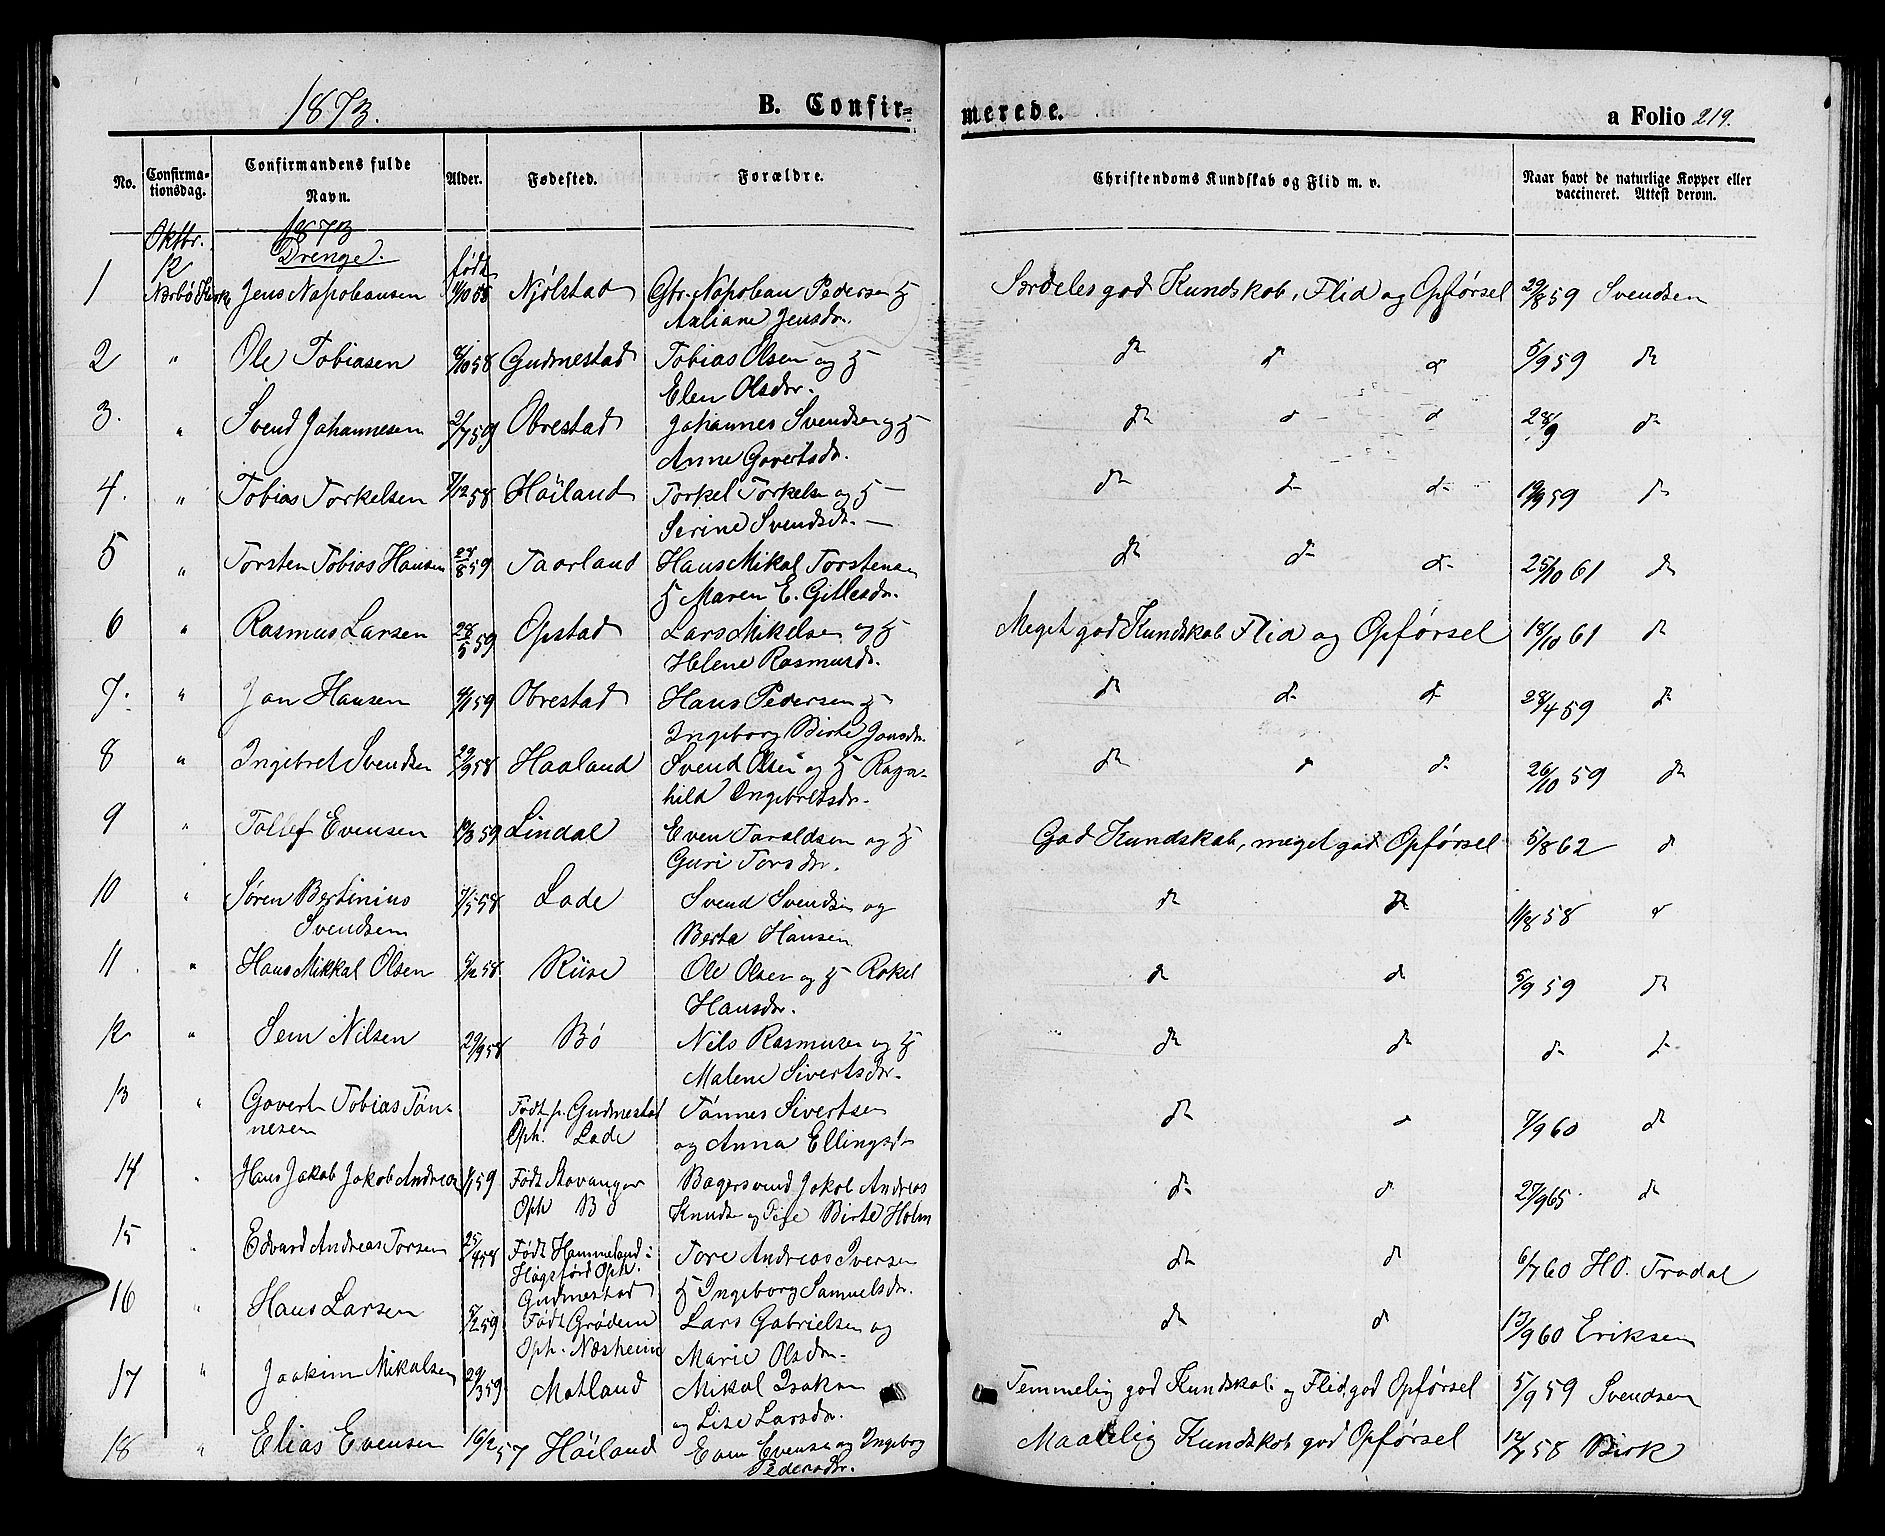 1873.
B. Confir=
merede.
a Folio 219.
No.
Confirma-
tionsdag.
Confirmandens fulde
Navn.
Alder.
Fødested.
Forældre.
Christendoms Kundskab og Flid m. v.
Naar havt de naturlige Kopper eller
vaccineret. Attest derom.
Oktbr. 1873
12 Drenge. født
1 Nærbø Kirke Jens Napoleansen 58 Njølstad Gbr. Napolean Pedersen og Særdeles god Kundskab, Flid og Opførsel 29/8 59 Svendsen
Axliane Jensdr.
2 " Ole Tobiasen 8/10 58 Gudmestad Tobias Olsen og H do d d 5/9 59 do
Elen Olsdtr.
3. " Svend Johannesen 2/7 59 Obrestad Johannes Svendsen og H do d d 28/9 do
Anne Govertsdr.
4. " Tobias Torkelsen 7/12 58 Høiland Torkel Torkelsen og H do d d 19/9 59 do
Serine Svendsdr.
5 " Torsten Tobias Hansen 28/8 59 Taarland Hans Mikal Torstensen do d d 25/10 61 do
H Maren E. Gitlesdr.
6 " Rasmus Larsen 28/5 59 Opstad Lars Mikelsen og H Meget god Kundskab Flid og Opførsel 18/10 61 do
Helene Rasmusdr.
7. " Jon Hansen 59 Obrestad Hans Pedersen H do d d 28/4 59 do
Ingeborg Birte Jonsdr.
8 " Ingebret Svendsen 29/9 58 Haaland Svend Olsen og H Ragn- do d d 26/10 59 do
hild Ingebretsdr.
9 " Tollef Evensen 59 Lindal Even Taraldsen og H God Kundskab, meget god Opførsel 5/8 62 d
Guri Torsdr.
10 " Søren Bertinius 7/5 58 Lode Svend Svendsen og do do 11/8 58 d
Svendsen Berta Hansen
11 " Hans Mikkal Olsen 8/12 58 Riise Ole Olsen og H Rakel d d 5/9 59 do
Hansdr.
12 " Sem Nilsen 29/9 58 Bø Nils Rasmusen og H do do d d
Malene Sivertsdr.
13 " Govert Tobias Tøn- Født p. Gudmestad Tønnes Sivertsen do d 7/9 60 do
nesen Oph. Lode og Anna Ellingsdr
14 " Hans Jakob Jakob Andreas 59 Født Stavanger Bagersvend Jakob Andreas do d 27/9 65. do
Oph Bø Knudsen og Pige Birte Holm
15 " Edvard Andreas Torsen 25/4 58 Født Hammeland i Tore Andreas Iversen do d 6/7 60 H.O. Tradal
Høgsfjord Oph. Gudmestad H Ingeborg Samuelsdr.
16 " Hans Larsen 5/2 59 Født Grødem Lars Gabrielsen og do d 13/9 60 Eriksen
Oph. Næsheim Marie Olsdr.
17 " Joakim Mikalsen 29/3 59 Motland Mikal Isaksen Temmelig god Kundskab og Flid, god Opførsel 5/9 59 Svendsen
og Lise Larsdr.
18 " Elias Evensen 16/2 57 Høiland Even Evensen og Ingeborg Maadelig Kundskab god Opførsel 12/7 58 Birk
Pedersdr.